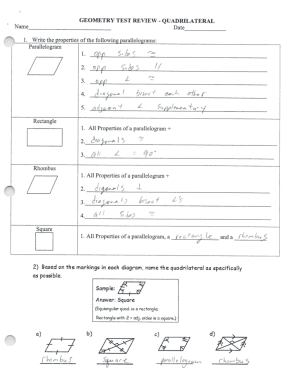 GEOMETRY TEST REVIEW - QUADRILATERAL
Name Date
1. Write the properties of the following parallelograms:
Parallelogram
1. opp sides ≅
2. opp sides //
3. opp ∠ ≅
4. diagonal bisect each other
5. adjacent ∠ supplementary
Rectangle
1. All Properties of a parallelogram +
2. diagonals ≅
3. all ∠ = 90°
Rhombus
1. All Properties of a parallelogram +
2. diagonals ⊥
3. diagonals bisect ∠s
4. all sides ≅
Square
1. All Properties of a parallelogram, a rectangle and a rhombus
2) Based on the markings in each diagram, name the quadrilateral as specifically
as possible.
Sample:
Answer: Square
(Equiangular quad is a rectangle;
Rectangle with 2 adj. sides is a square.)
a) b) c) d)
rhombus square parallelogram rhombus